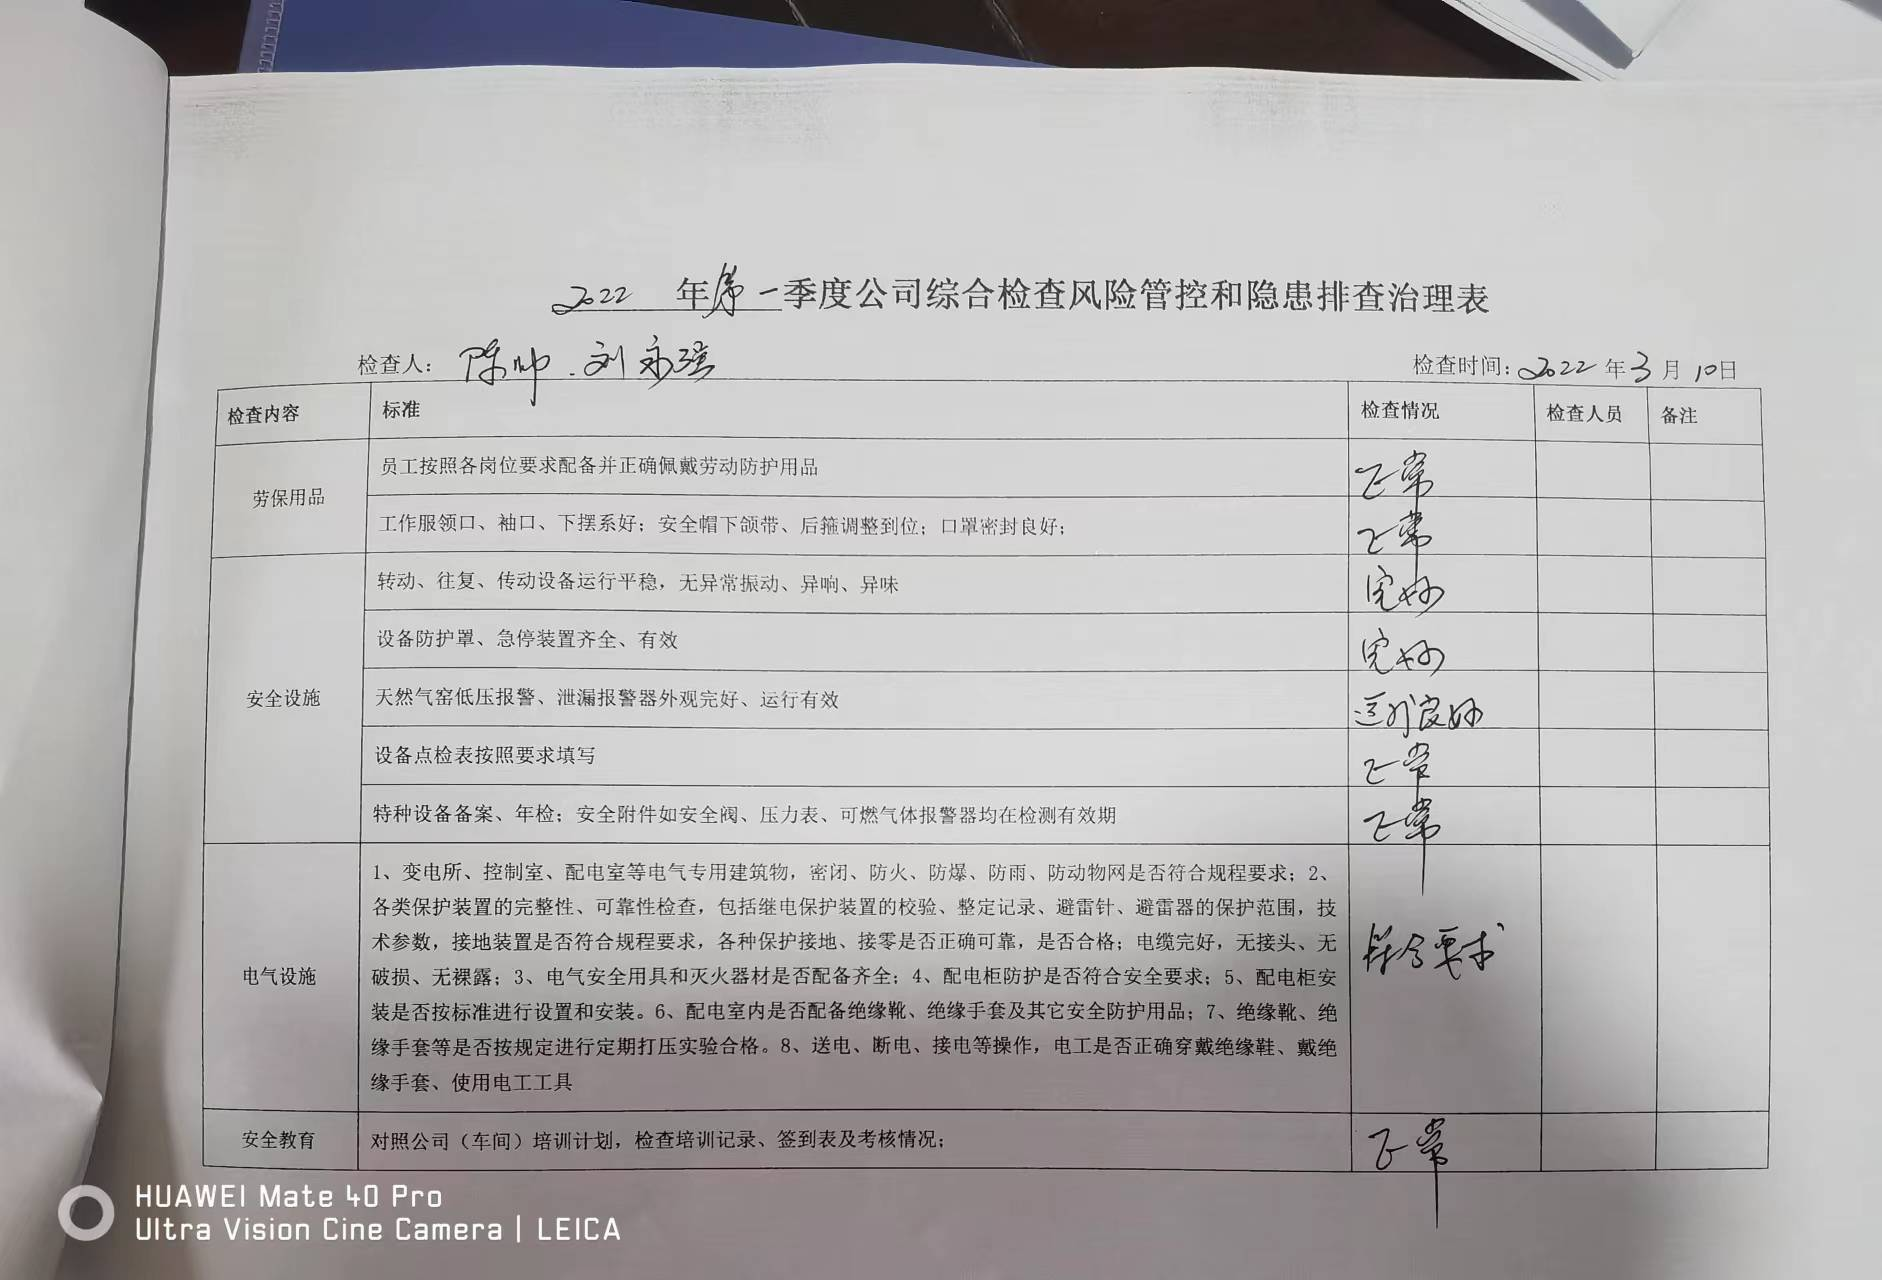 2022 年第一季度公司综合检查风险管控和隐患排查治理表
检查人： 陈帅.刘永强
检查时间：2022 年 3 月 10日
检查内容 标准 检查情况 检查人员 备注
劳保用品
员工按照各岗位要求配备并正确佩戴劳动防护用品 正常
工作服领口、袖口、下摆系好；安全帽下颌带、后箍调整到位；口罩密封良好； 正常
安全设施
转动、往复、传动设备运行平稳，无异常振动、异响、异味 完好
设备防护罩、急停装置齐全、有效 完好
天然气窑低压报警、泄漏报警器外观完好、运行有效 运行良好
设备点检表按照要求填写 正常
特种设备备案、年检；安全附件如安全阀、压力表、可燃气体报警器均在检测有效期 正常
电气设施
1、变电所、控制室、配电室等电气专用建筑物，密闭、防火、防爆、防雨、防动物网是否符合规程要求；2、
各类保护装置的完整性、可靠性检查，包括继电保护装置的校验、整定记录、避雷针、避雷器的保护范围，技
术参数，接地装置是否符合规程要求，各种保护接地、接零是否正确可靠，是否合格；电缆完好，无接头、无
破损、无裸露；3、电气安全用具和灭火器材是否配备齐全；4、配电柜防护是否符合安全要求；5、配电柜安
装是否按标准进行设置和安装。6、配电室内是否配备绝缘靴、绝缘手套及其它安全防护用品；7、绝缘靴、绝
缘手套等是否按规定进行定期打压实验合格。8、送电、断电、接电等操作，电工是否正确穿戴绝缘鞋、戴绝
缘手套、使用电工工具
符合要求
安全教育 对照公司（车间）培训计划，检查培训记录、签到表及考核情况； 正常
HUAWEI Mate 40 Pro
Ultra Vision Cine Camera | LEICA